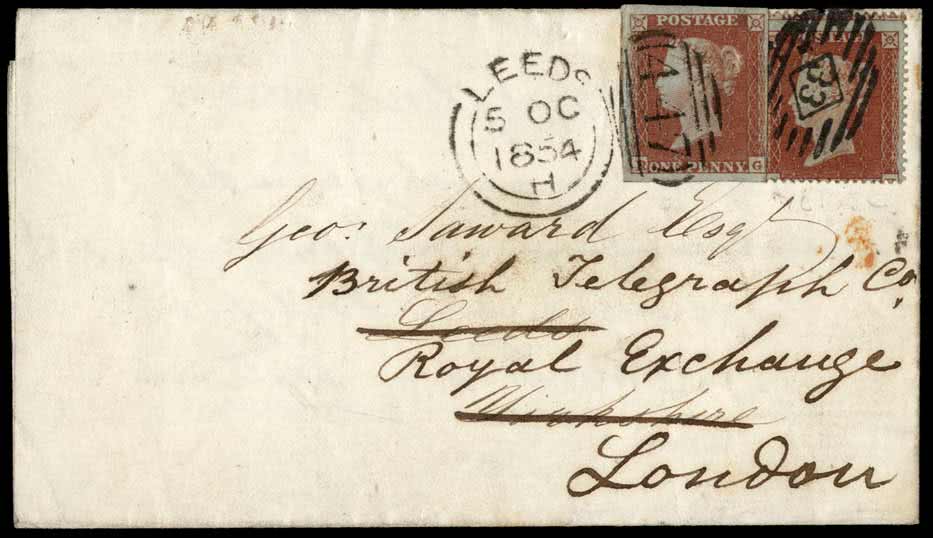 POSTAGE
447
ONE PENNY G
33
LEEDS
5 OC
1854
H
Geo: Saward Esqr
British Telegraph Co,
Leeds
Royal Exchange
London